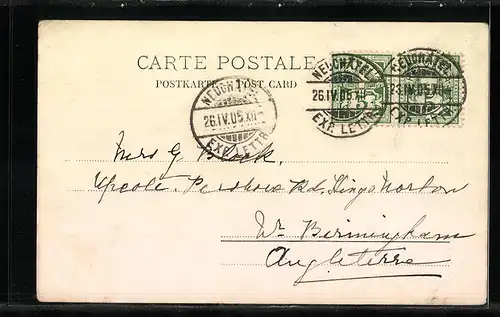 CARTE POSTALE
POSTKARTE POST CARD
NEUCHATEL
26.IV.05.XII
EXP. LETTR.
NEUCHATEL
26.IV.05.XII
EXP. LETTR.
NEUCHATEL
EXP. LETTR.
Mrs G.
Upcote. Pershore Rd. Kings Norton
Nr Birmingham
Angleterre